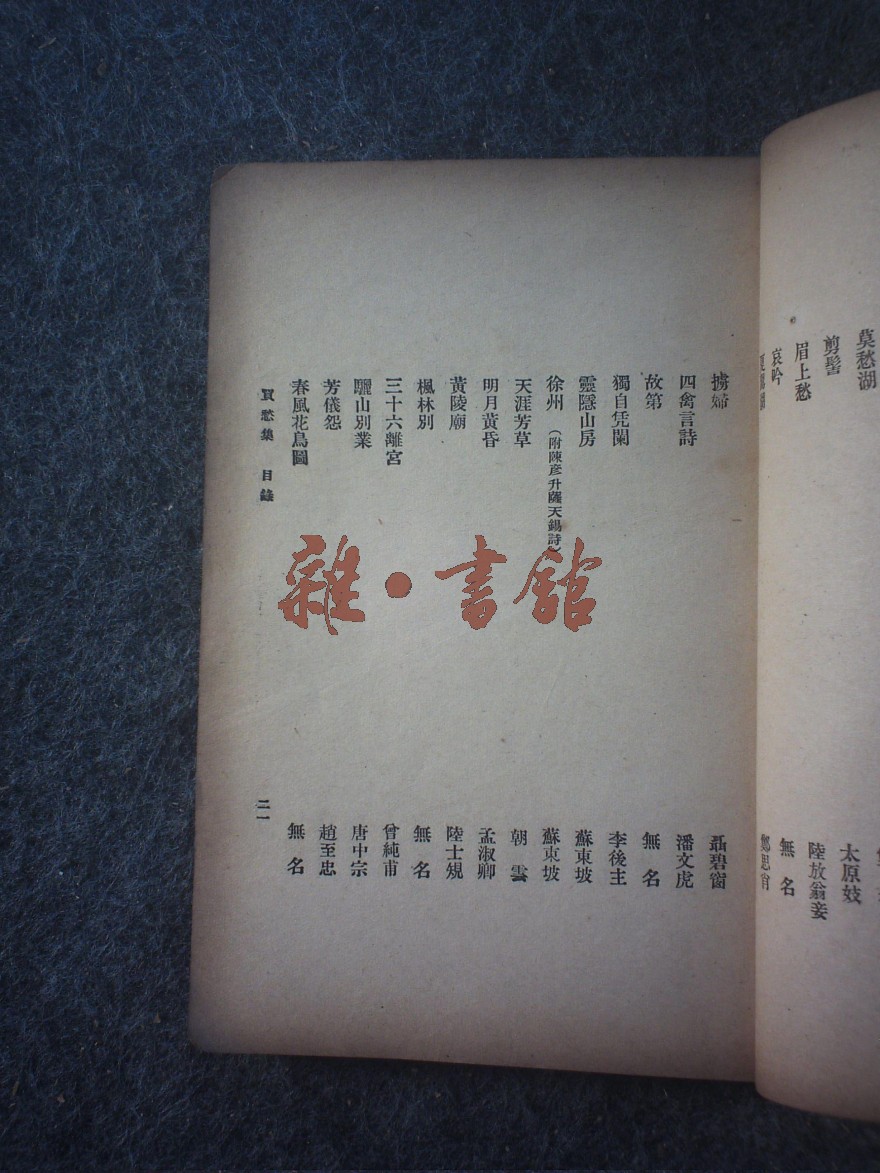 莫愁湖
剪髻
眉上愁
哀吟
太原妓
陸放翁妾
無名
鄭思肖
擄婦
四禽言詩
故第
獨自凭闌
靈隱山房
徐州（附陳彦升薩天錫詩）
天涯芳草
明月黃昏
黃陵廟
楓林別
三十六離宮
驪山別業
芳儀怨
春風花鳥圖
聶碧窗
潘文虎
無名
李後主
蘇東坡
蘇東坡
朝雲
孟淑卿
陸士規
無名
曾純甫
唐中宗
趙至忠
無名
買愁集 目錄
二一
雜·書館